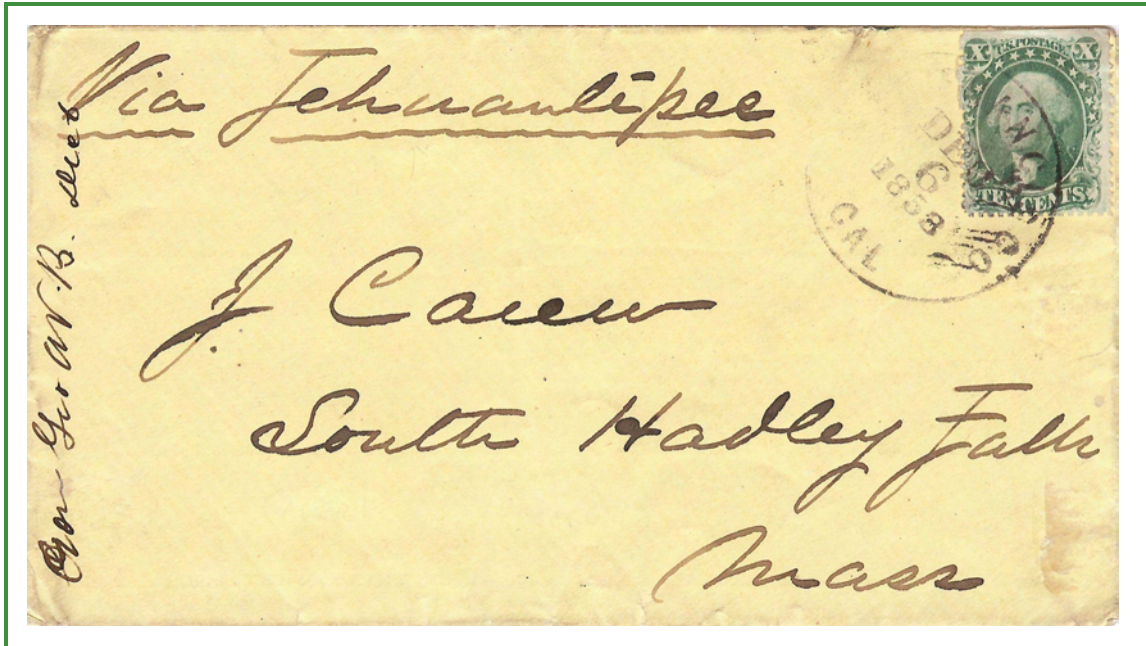 Via Tehuantepec
X U.S. POSTAGE X
TEN CENTS
6
1858
CAL
J Carew
South Hadley Falls
Mass